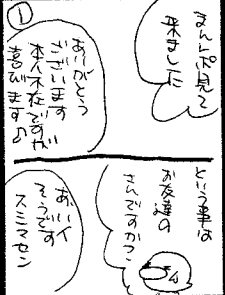 ①
まんレポ見て
来ました
ありがとう
ございます
本人不在ですが
喜びます♪
という事は
お友達の
さんですか?
あ、いイ
そうです
スミマセン